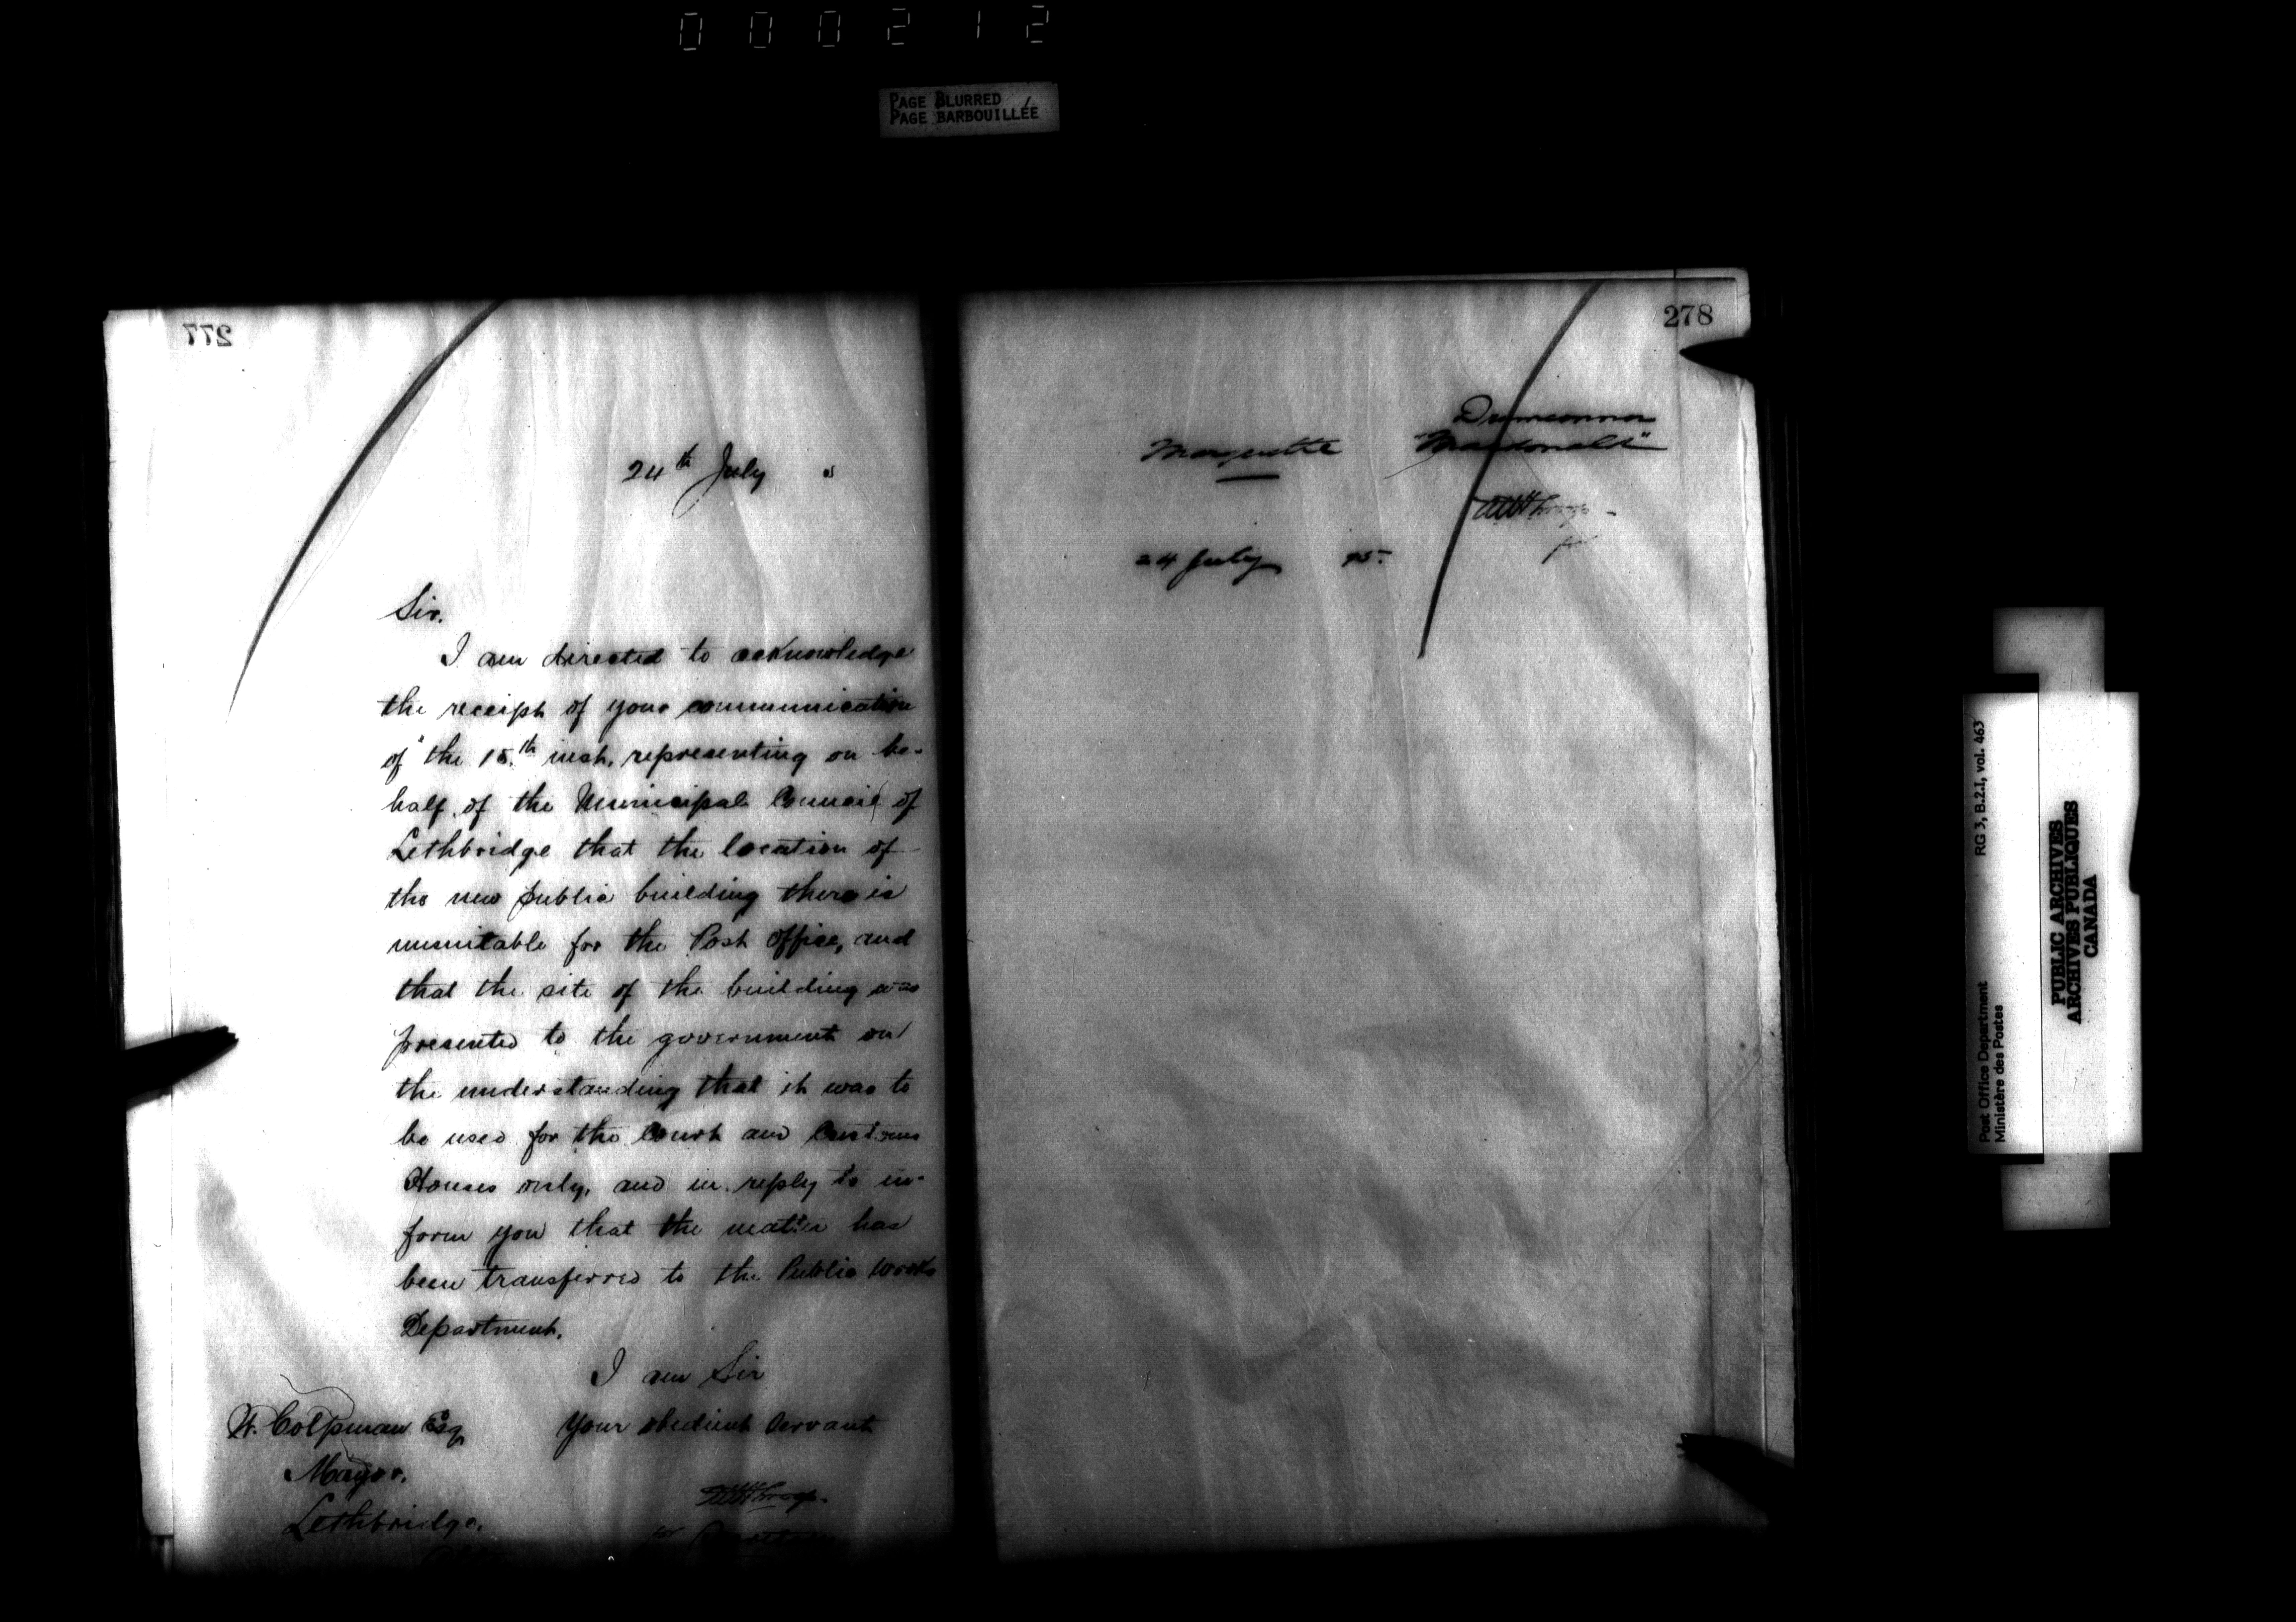 000212
PAGE BLURRED
PAGE BARBOUILLÉE
277
24th July
Sir.
I am directed to acknowledge
the receipt of your communication
of the 15th inst. representing on be-
half of the Municipal Council of
Lethbridge that the location of
the new public building there is
unsuitable for the Post Office, and
that the site of the building was
presented to the government on
the understanding that it was to
be used for the Court and Customs
Houses only, and in reply to in-
form you that the matter has
been transferred to the Public Works
Department.
I am Sir
Your obedient Servant
W. Colpman Esq
Mayor.
Lethbridge.
for Secretary
278
Drumconnor
Marquette "Macdonald"
24 July 95
RG 3, B.2.I, vol. 463
Post Office Department
Ministère des Postes
PUBLIC ARCHIVES
ARCHIVES PUBLIQUES
CANADA